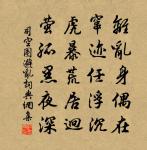 離亂身偶在
竄迹任浮沉
虎暴荒居迥
螢孤黑夜深
司空圖避亂詞典網集